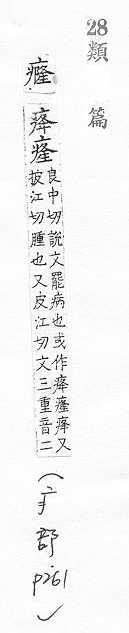 28
類篇
癃
良中切說文罷病也或作又
披江切腫也又皮江切文三重音二
(疒部
p261)